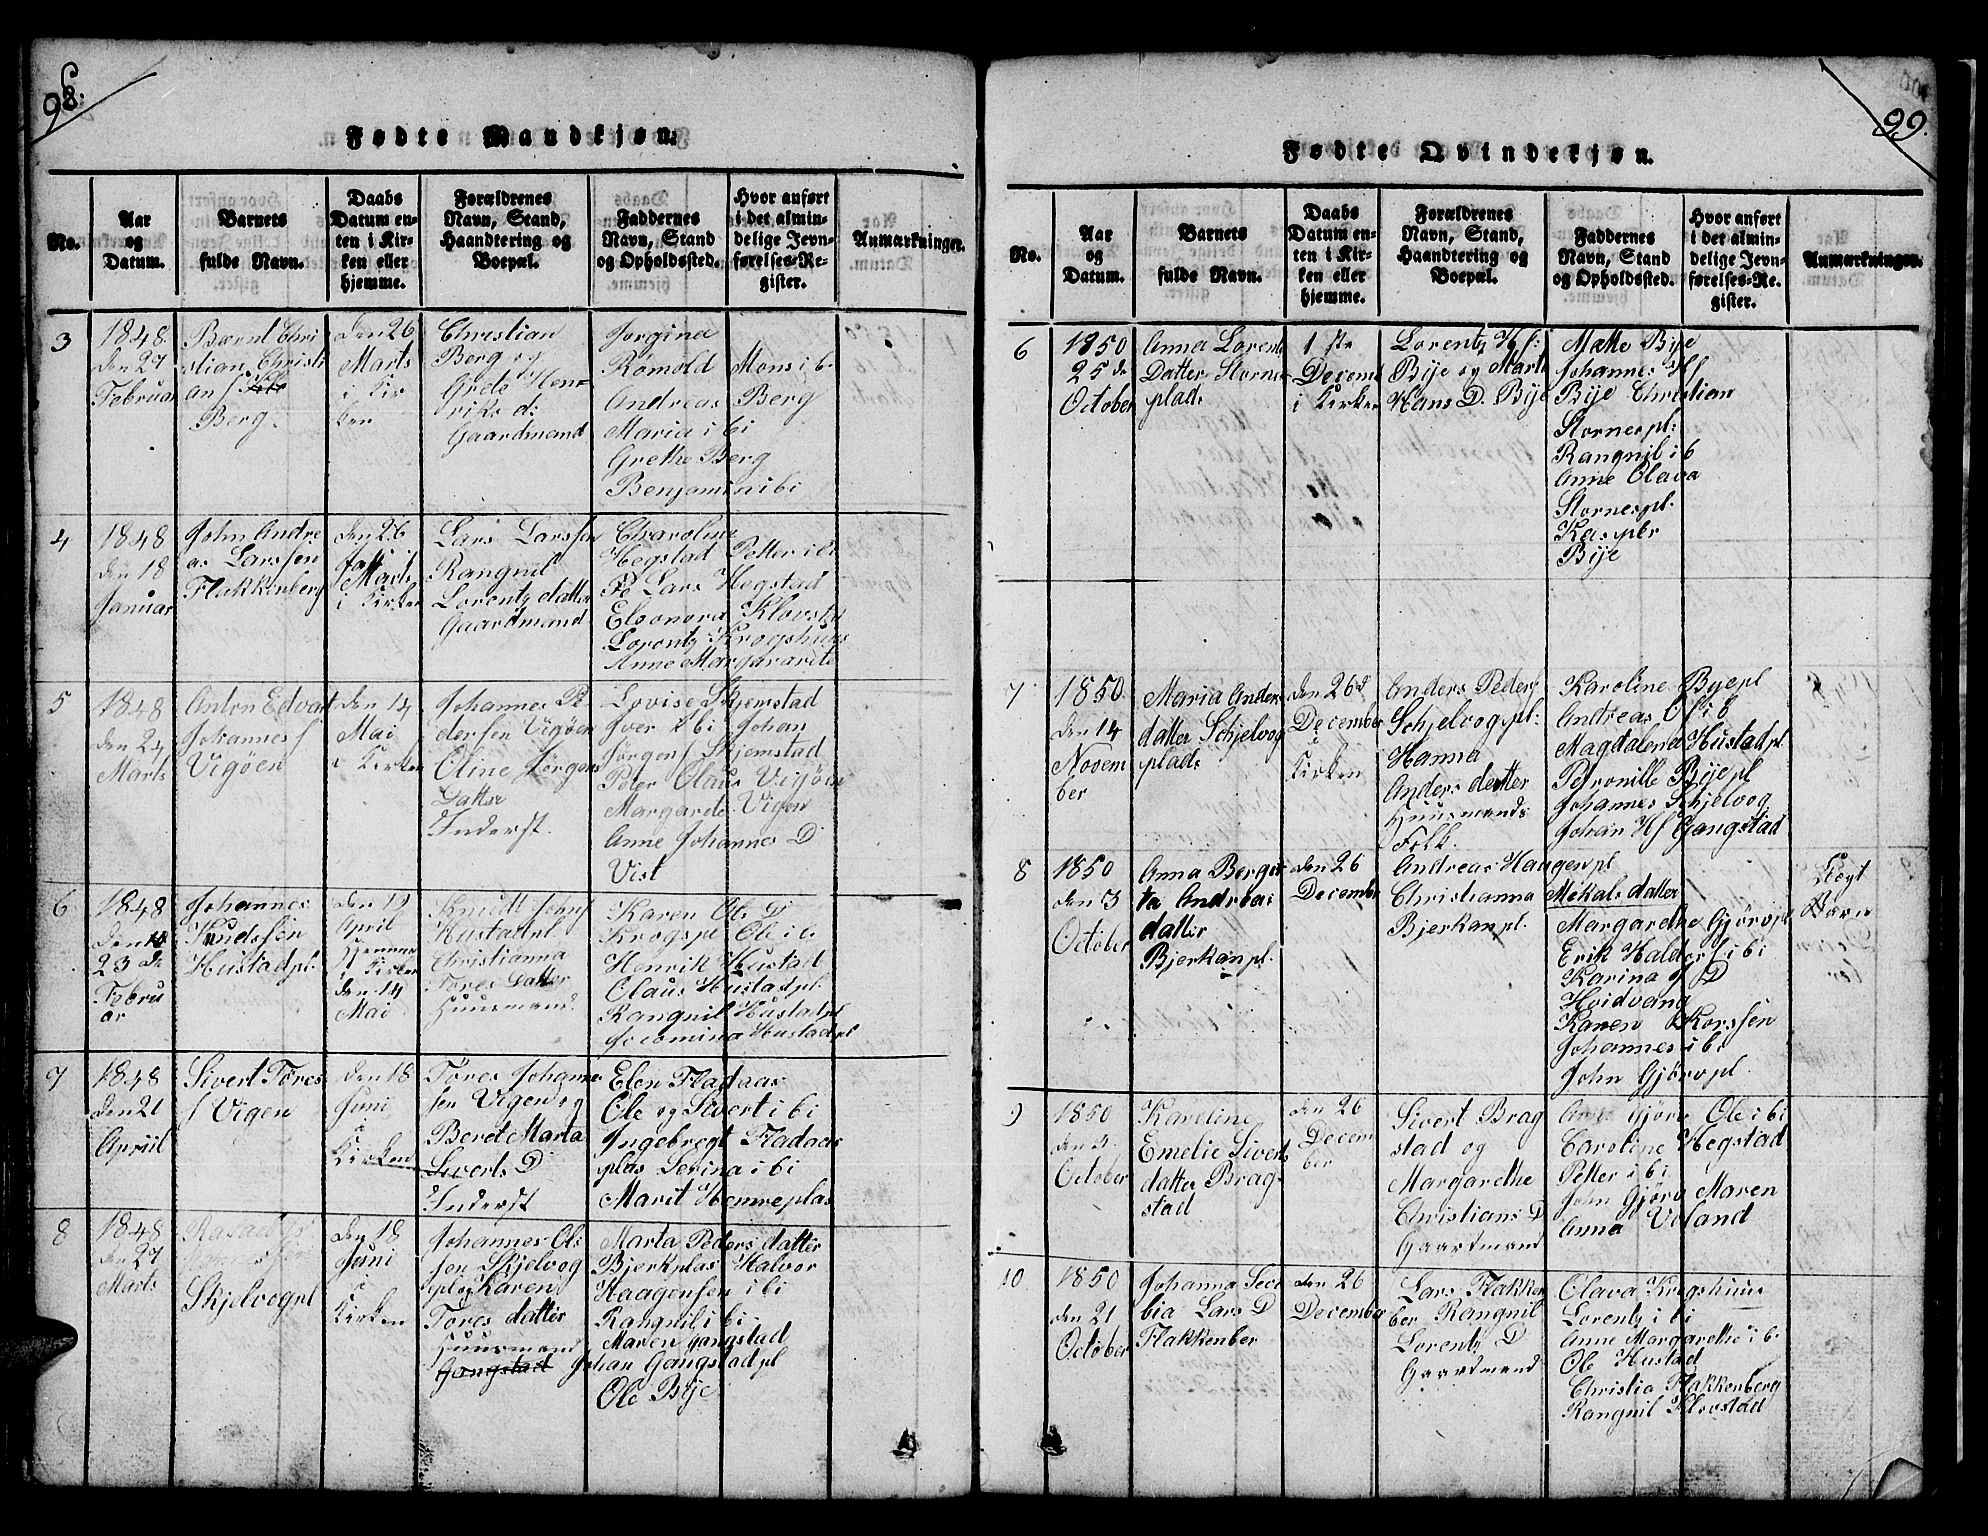 98.
Fødte Mandkjøn.
No.
Aar
og
Datum.
Barnets
fulde Navn.
Daabs
Datum en-
ten i Kir-
ken eller
hjemme.
Forældrenes
Navn, Stand,
Haandtering og
Boepæl.
Faddernes
Navn, Stand
og Opholdssted.
Hvor anført
i det almin-
delige Jevn-
førelses-Re-
gister.
Anmærkninger.
3
1848
den 27
Februar
Bærnt Chri
stian Christi
an
Berg.
den 26
Marts
i Kir
ken
Christian
Berg og
Grete Hen-
riks d:
Gaardmand
Jorgina
Romold Mons i bi
Andreas Berg
Maria i bi
Grethe Berg
Benjamin i bi
4
1848
den 18
Januar
John Andre
as Larssen
Flakkenberg
den 26
Marts
i Kirken
Lars Larssen
Rangnil
Lorentz datter
Gaardmand
Charoline
Hegstad Petter i bi
Lars Hegstad
Eleonora Klovst
Lorentz Krogshuus
Anne Margararite
5
1848
den 24
Marts
Anton Edvart
Johannes f
Vigøen
den 14
Mai
i Kirken
Johannes Pe
dersen Vigøen
Oline Jørgens
Datter
Inderst.
Lovise Skjemstad
Iver i bi Johan
Jørgen f Skjemstad
Peter Olaus Vigøen
Margarete Vigen
Anne Johannes D
Vist
6
1848
23 de
Febru
ar
Johannes
Knudssen
Hustadpl.
den 19
April
Hjemme
i Kirken
den 14
Mai
Knudt Johns
Hustadpl
Christianna
Tores Datter
Huusmand
Karen Ole D
Krogspl Ole i bi
Henrik Hustad
Olaus Hustadpl.
Rangnil Hustadpl
Jocomina Hustadpl
7
1848
den 21
Apriil
Sivert Tøres
f Vigen
den 18
Juni
i
Kirken
Tøres Johannes
sen Vigen og
Beret Marta
Siverts D
Inderst
Elen Fladaas
Ole og Sivert i bi
Ingebregt Fladaas
plas Serina i bi
Marit Hemreplas
8
1848
den 27
Marts
Skjelvogpl
den 18
Juni
i
Kirken
Johannes Ol
sen Skjelvog
pl og Karen
Tores datter
Huusmand
Gangstad
Marta Peders datter
Bjerkplas Halvor
Haagensen i bi
Rangnil i bi
Maren gangstad
Johan Gangstadpl
Ole Bye
99.
Fødte Qvindekjøn.
No.
Aar
og
Datum.
Barnets
fulde Navn.
Daabs
Datum en-
ten i Kir-
ken eller
hjemme.
Forældrenes
Navn, Stand,
Haandtering og
Boepæl.
Faddernes
Navn, Stand
og Opholdssted.
Hvor anført
i det almin-
delige Jevn-
førelses-Re-
gister.
Anmærkninger.
6
1850
25 de
October
Anna Lorentz
Datter Stornes
plads
1 ste
Decemb
i Kirken
Lorentz H f:
Bije og Marta
Hans D. Bije
Mette Bije
Johannes
Bije Christian
Stornespl:
Rangnil i b
Anne Olava
Stornespl.
Kasper
Bije
7
1850
den 14
Novem
ber
Maria Anders
datter Schjelvog
plads
den 26 d
December
i
Kirken
Anders Peders
Schjelvogspl:
Hanna
Anders datter
Huusmands
Folk.
Karoline Byepl
Andreas O f i b
Magdalena Hustadpl
Petronille Byepl
Johannes Skjelvog
Johan H f Gangstad
8
1850
den 3
October
Anna Bergit
ta Andreas
datter
Bjerkanpl.
den 26
December
Andreas Haugenpl
Christianna Mekals datter
Bjerkanpl.
Margarethe Gjørvpl
Erik Haldors f i bi
Karina D
Hvidvang
Karen Korssen
Johannes i bi
John Gjørvpl.
Uægt
Barn
9
1850
den 3
October
Karoline
Emelie Siverts
datter Brag-
stad
den 26
Decem
ber
Sivert Brag
stad og
Margarethe
Christians D
Gaartmand
Anne Gjørv Ole i bi
Caroline Hegstad
Petter i bi
John Gjørv Maren
Anna Voland
10
1850
den 21
October
Johanna Seve
bia Lars D
Flakkenber
den 26
December
Lars Flakken
ber Rangnil
Lorentz D
Gaartmand
Olava Krogshuus
Lorentz i bi
Anne Margarethe i b
Ole Hustad
Christia Flakkenberg
Rangnil Klovstad